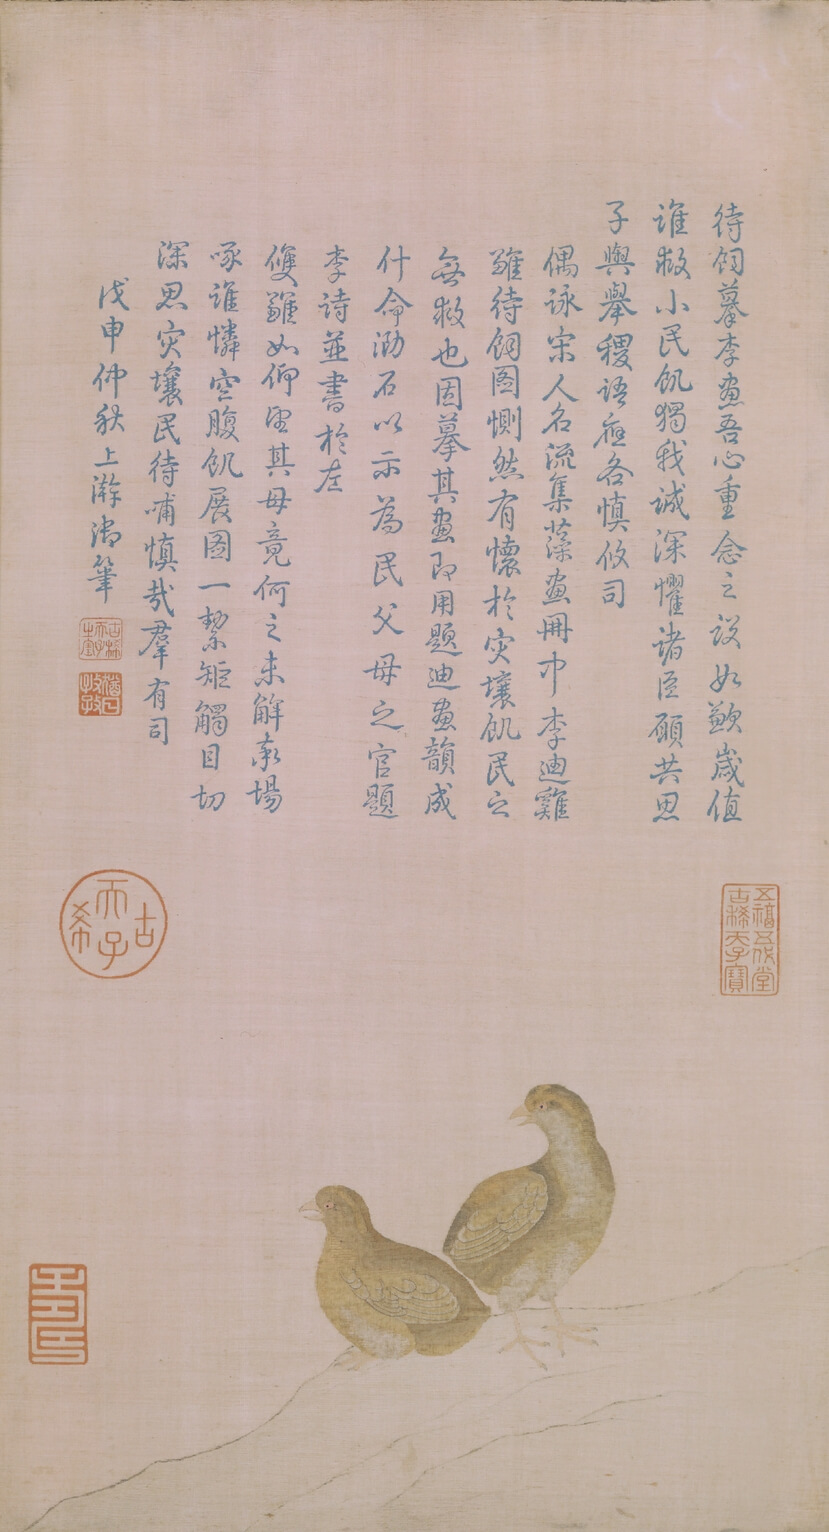 待飼摹李畫吾心重念之設如歉歲值
誰救小民飢獨我誠深懼諸臣願共思
子輿舉稷語应各慎攸司
偶詠宋人名流集藻畫冊中李迪雞
雛待飼圖惻然有懷於灾壤飢民之
無救也因摹其畫即用題迪畫韻成
什命泐石以示為民父母之官題
李詩並書於左
雙雛如仰望其母竟何之未解牽場
啄誰憐空腹飢展圖一絜矩觸目切
深思灾壤民待哺慎哉羣有司
戊申仲秋上澣御筆
古稀天子
猶日孜孜
古稀天子
五福五代堂
古稀天子寶